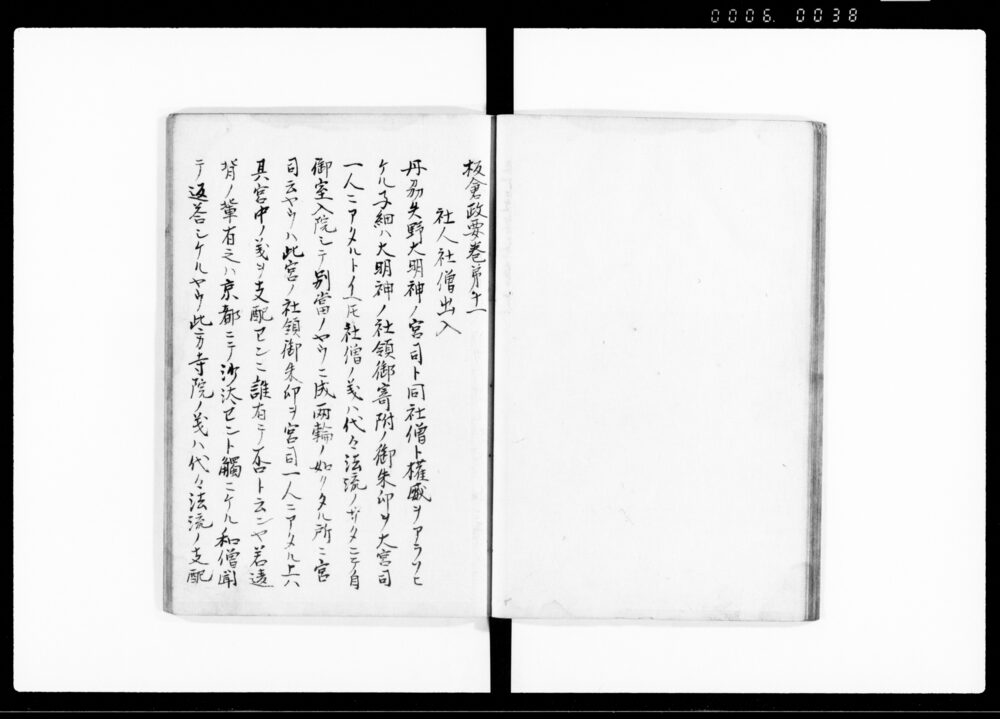 0006. 0038
板倉政要巻第十一
社人社僧出入
丹刕矢野大明神ノ宮司ト同社僧ト権威ヲアラソヒ
ケル子細ハ大明神ノ社領御寄附ノ御朱印ヲ大宮司
一人ニアタルトイヘ𪜈社僧ノ義ハ代々法流ノサタニテ自
御室入院シテ別當ノヤウニ成両輪ノ如リタル所ニ宮
司云ヤウハ此宮ノ社領御朱印ヲ宮司一人ニアタル上ハ
其宮中ノ義ヲ支配センニ誰有テ否ト云ンヤ若違
背ノ輩有之ハ京都ニテ沙汰セント觸ニケル和僧聞
テ返答シケルヤウ此方寺院ノ義ハ代々法流ノ支配